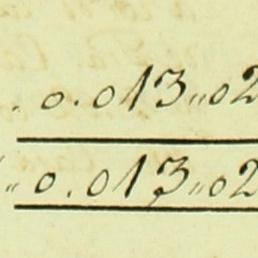 . 0.013„02
„ 0.013„02